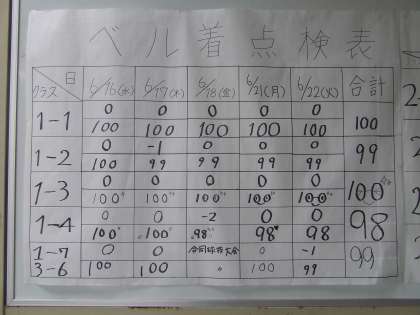 ベル着点検表
日 クラス 6/16(水) 6/17(木) 6/18(金) 6/21(月) 6/22(火) 合計
0 0 0 0 0
1-1 100 100 100 100 100 100
0 -1 0 0 0
1-2 100 99 99 99 99 99
0 0 0 0 0
1-3 100 100 100 100 100 100
0 0 -2 0 0
1-4 100 100 98 98 98 98
1-7 0 0 合同球技大会 0 -1
3-6 100 100 〃 100 99 99